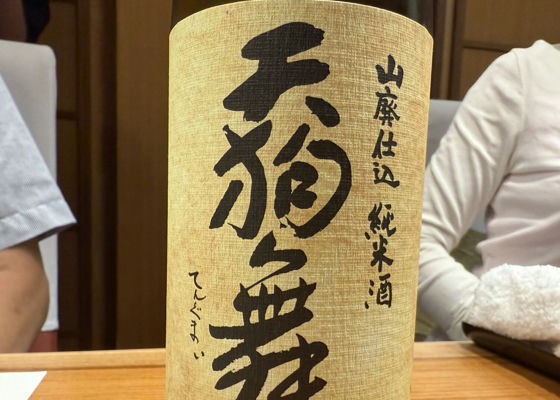 山廃仕込 純米酒
天狗舞
てんぐまい